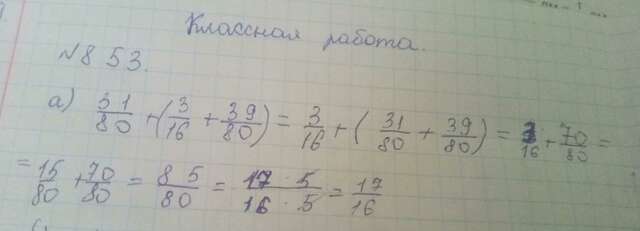 Классная работа.
№853.
а) 31/80 + (3/16 + 39/80) = 3/16 + (31/80 + 39/80) = 3/16 + 70/80 =
= 15/80 + 70/80 = 85/80 = 17 · 5/16 · 5 = 17/16